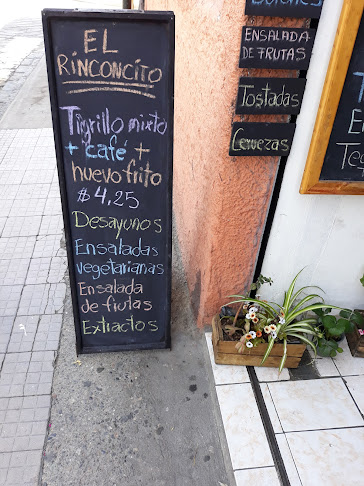 EL
RINCONCITO
Tigrillo mixto
+ café +
huevo frito
$ 4,25
Desayunos
Ensaladas
vegetarianas
Ensalada
de frutas
Extractos
ENSALADA
DE FRUTAS
Tostadas
Cervezas